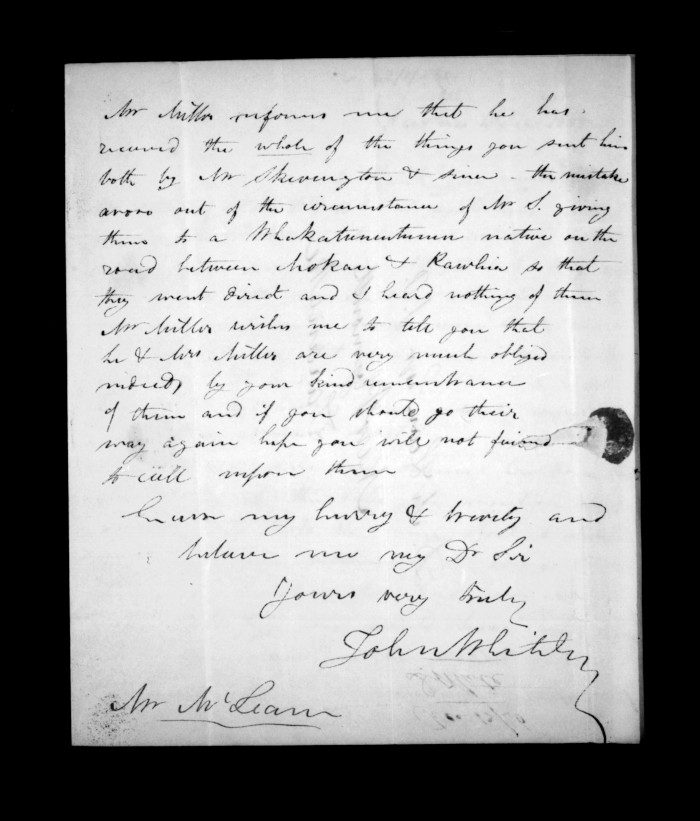 Mr Miller informs me that he has
received the whole of the things you sent him
both by Mr Skevington & since - the mistake
arose out of the circumstance of Mr S. giving
them to a Whakatumutumu native on the
road between Mokau & Kawhia so that
they went direct and I heard nothing of them
Mr Miller wishes me to tell you that
he & Mrs Miller are very much obliged
indeed by your kind remembrance
of them and if you should go their
way again hope you will not
to call upon them
Excuse my hurry & brevity and
believe me my Dr Sir
Yours very truly
John Whiteley
Mr McLean